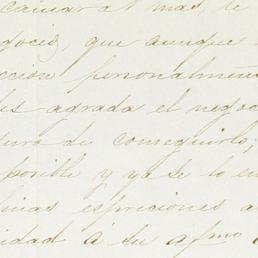 al mas, te
que aunque
personalmen
agrada el negoc
de conseguirlo;
posible y ya se lo en
espreciones a
idad á su afmo